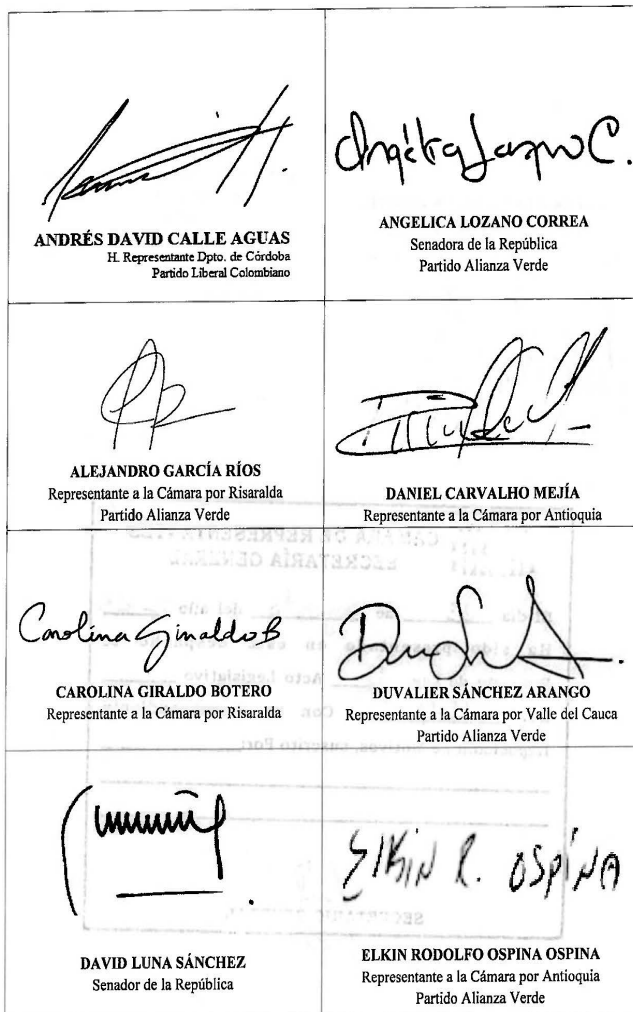 ANDRÉS DAVID CALLE AGUAS
H. Representante Dpto. de Córdoba
Partido Liberal Colombiano
Angélica Lozano C.
ANGELICA LOZANO CORREA
Senadora de la República
Partido Alianza Verde
ALEJANDRO GARCÍA RÍOS
Representante a la Cámara por Risaralda
Partido Alianza Verde
DANIEL CARVALHO MEJÍA
Representante a la Cámara por Antioquia
CÁMARA DE REPRESENTANTES
SECRETARÍA GENERAL
del año
Acto Legislativo
Con
suscrito Por:
Carolina Giraldo B
CAROLINA GIRALDO BOTERO
Representante a la Cámara por Risaralda
DUVALIER SÁNCHEZ ARANGO
Representante a la Cámara por Valle del Cauca
Partido Alianza Verde
DAVID LUNA SÁNCHEZ
Senador de la República
ELKIN R. OSPINA
SECRETARIO GENERAL
ELKIN RODOLFO OSPINA OSPINA
Representante a la Cámara por Antioquia
Partido Alianza Verde